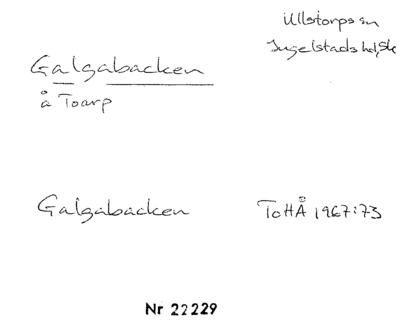 Ullstorps sn
Ingelstads hd, Sk
Galgabacken
å Toarp
Galgabacken ToHÅ 1967:73
Nr 22229